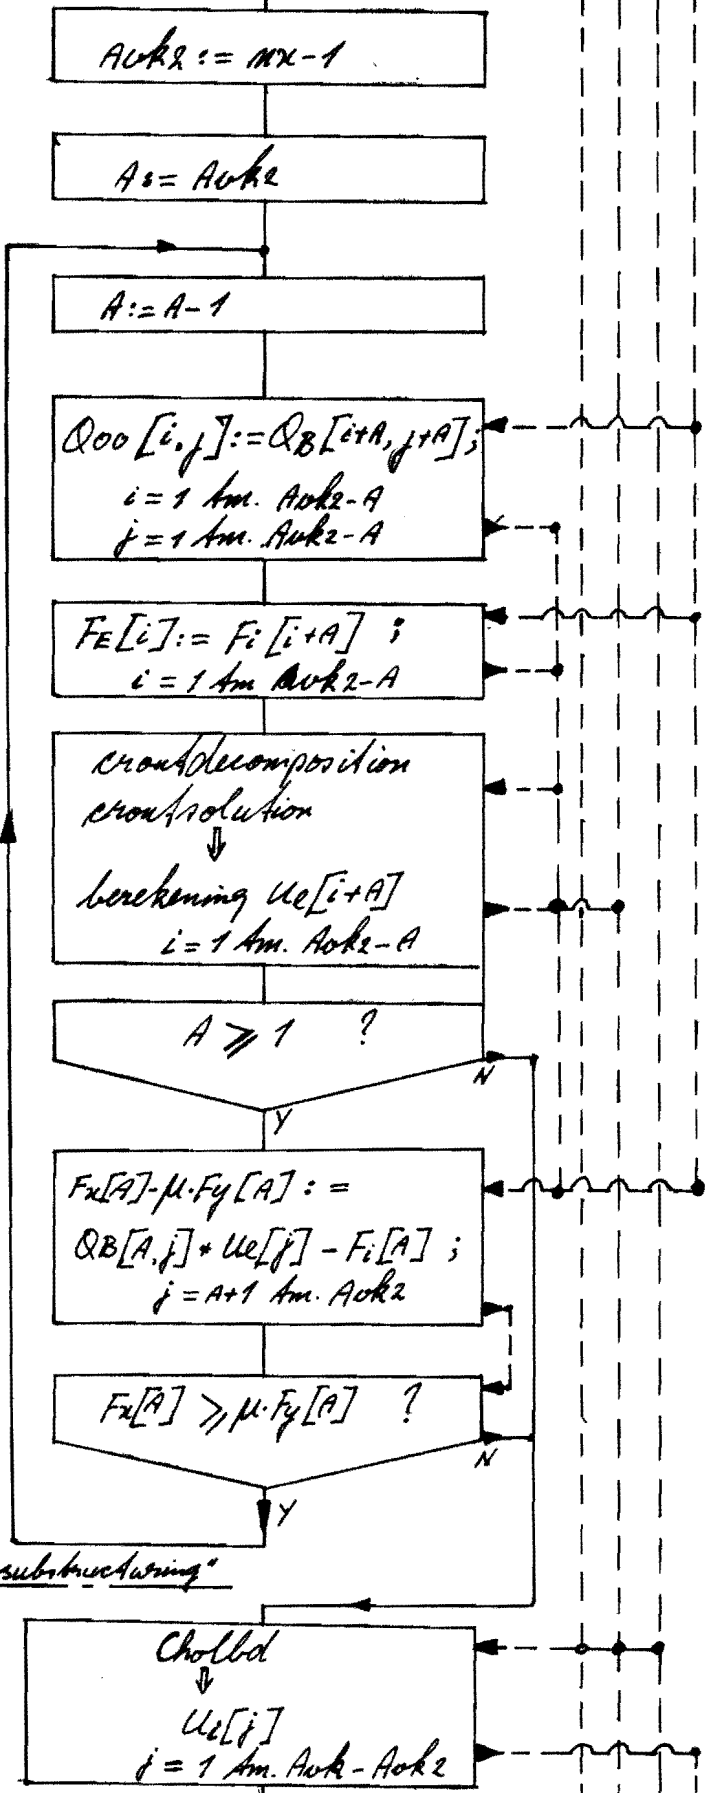 Aok2 := nx-1
A := Aok2
A := A-1
Qoo [i,j] := QB [i+A, j+A] ;
i = 1 t.m. Aok2-A
j = 1 t.m. Aok2-A
FE [i] := Fi [i+A] ;
i = 1 t.m Aok2-A
croutdecomposition
croutsolution
⇓
berekening ue[i+A]
i = 1 t.m. Aok2-A
A ⩾ 1 ?
N
Y
Fx[A]-μ·Fy[A] :=
QB[A,j] * ue[j] - Fi[A] ;
j = A+1 t.m. Aok2
Fx[A] ⩾ μ·Fy[A] ?
N
Y
substructuring"
Cholbd
⇓
ui[j]
j = 1 t.m. Aok-Aok2